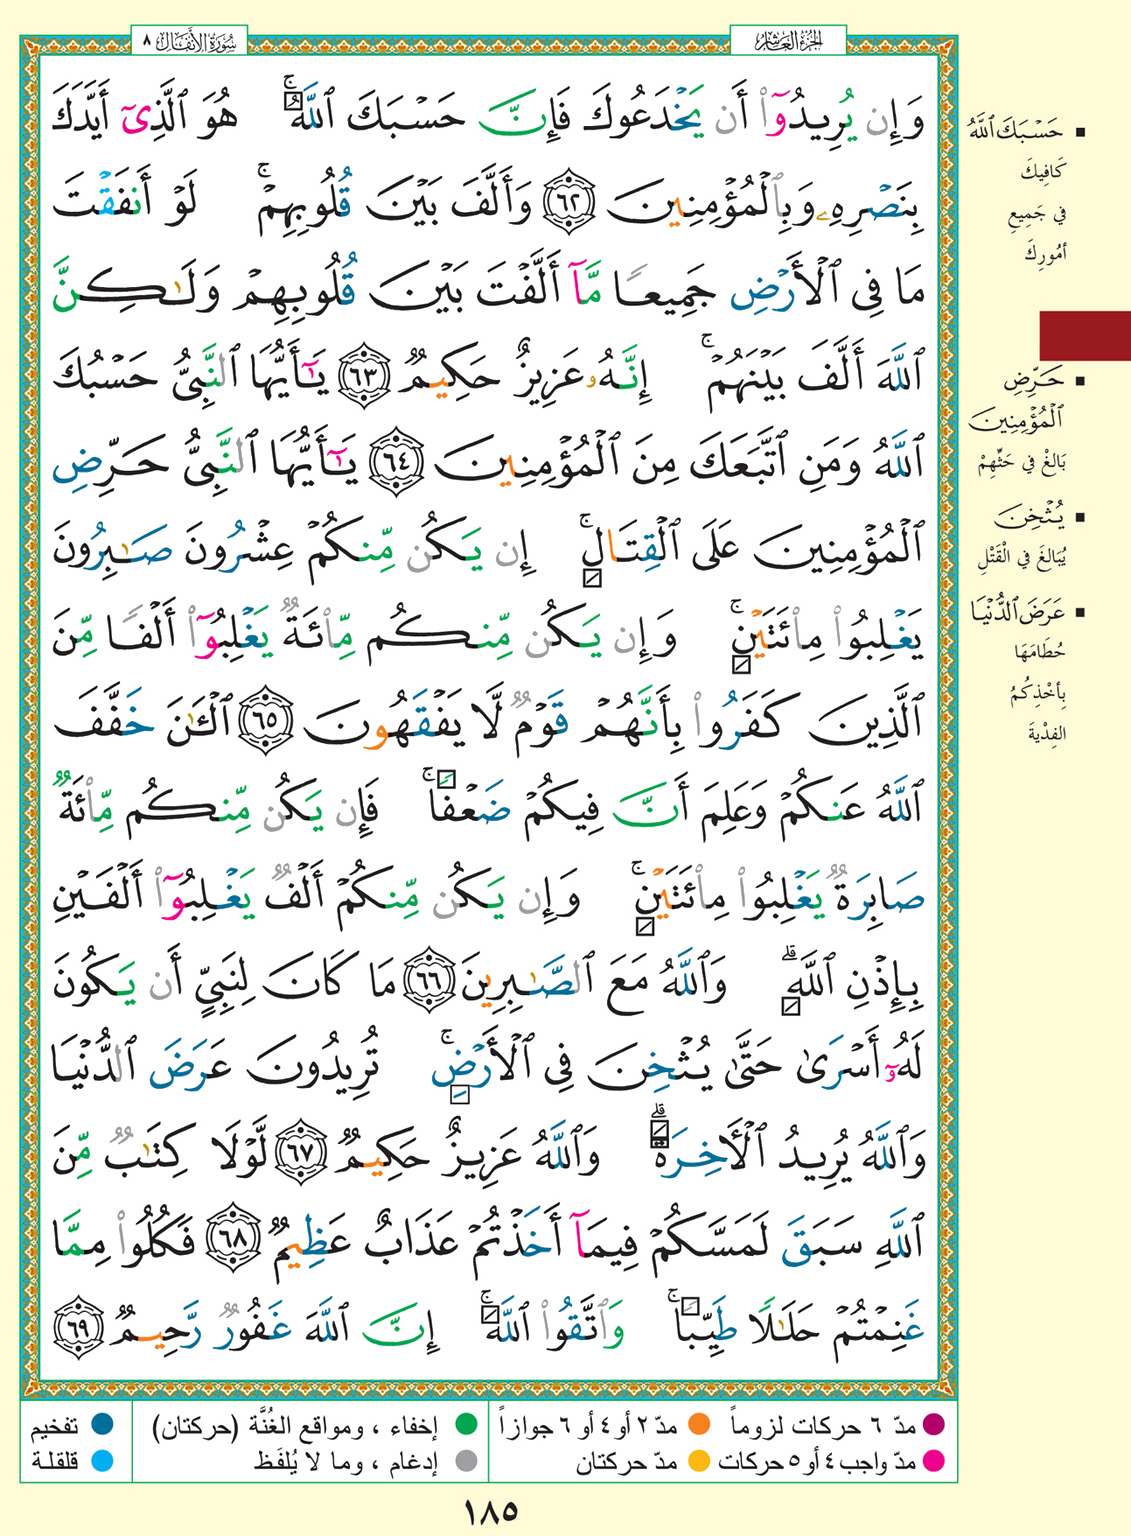 الجزء العاشر
سورة الأنفال ٨
وَإِن يُرِيدُوٓا۟ أَن يَخْدَعُوكَ فَإِنَّ حَسْبَكَ ٱللَّهُ ۚ هُوَ ٱلَّذِىٓ أَيَّدَكَ
بِنَصْرِهِۦ وَبِٱلْمُؤْمِنِينَ ٦٢ وَأَلَّفَ بَيْنَ قُلُوبِهِمْ ۚ لَوْ أَنفَقْتَ
مَا فِى ٱلْأَرْضِ جَمِيعًا مَّآ أَلَّفْتَ بَيْنَ قُلُوبِهِمْ وَلَٰكِنَّ
ٱللَّهَ أَلَّفَ بَيْنَهُمْ ۚ إِنَّهُۥ عَزِيزٌ حَكِيمٌ ٦٣ يَٰٓأَيُّهَا ٱلنَّبِىُّ حَسْبُكَ
ٱللَّهُ وَمَنِ ٱتَّبَعَكَ مِنَ ٱلْمُؤْمِنِينَ ٦٤ يَٰٓأَيُّهَا ٱلنَّبِىُّ حَرِّضِ
ٱلْمُؤْمِنِينَ عَلَى ٱلْقِتَالِ ۚ إِن يَكُن مِّنكُمْ عِشْرُونَ صَٰبِرُونَ
يَغْلِبُوا۟ مِا۟ئَتَيْنِ ۚ وَإِن يَكُن مِّنكُم مِّا۟ئَةٌ يَغْلِبُوٓا۟ أَلْفًا مِّنَ
ٱلَّذِينَ كَفَرُوا۟ بِأَنَّهُمْ قَوْمٌ لَّا يَفْقَهُونَ ٦٥ ٱلْـَٰٔنَ خَفَّفَ
ٱللَّهُ عَنكُمْ وَعَلِمَ أَنَّ فِيكُمْ ضَعْفًا ۚ فَإِن يَكُن مِّنكُم مِّا۟ئَةٌ
صَابِرَةٌ يَغْلِبُوا۟ مِا۟ئَتَيْنِ ۚ وَإِن يَكُن مِّنكُمْ أَلْفٌ يَغْلِبُوٓا۟ أَلْفَيْنِ
بِإِذْنِ ٱللَّهِ ۗ وَٱللَّهُ مَعَ ٱلصَّٰبِرِينَ ٦٦ مَا كَانَ لِنَبِىٍّ أَن يَكُونَ
لَهُۥٓ أَسْرَىٰ حَتَّىٰ يُثْخِنَ فِى ٱلْأَرْضِ ۚ تُرِيدُونَ عَرَضَ ٱلدُّنْيَا
وَٱللَّهُ يُرِيدُ ٱلْـَٔاخِرَةَ ۗ وَٱللَّهُ عَزِيزٌ حَكِيمٌ ٦٧ لَّوْلَا كِتَٰبٌ مِّنَ
ٱللَّهِ سَبَقَ لَمَسَّكُمْ فِيمَآ أَخَذْتُمْ عَذَابٌ عَظِيمٌ ٦٨ فَكُلُوا۟ مِمَّا
غَنِمْتُمْ حَلَٰلًا طَيِّبًا ۚ وَٱتَّقُوا۟ ٱللَّهَ ۚ إِنَّ ٱللَّهَ غَفُورٌ رَّحِيمٌ ٦٩
حَسْبَكَ ٱللَّهُ
كَافِيكَ
في جَمِيعِ
أمُورِكَ
حَرِّضِ
ٱلْمُؤْمِنِينَ
بَالغْ في حَثِّهِمْ
يُثْخِنَ
يُبَالغَ في الْقَتْلِ
عَرَضَ ٱلدُّنْيَا
حُطَامَهَا
بِأَخْذِكُمُ
الفِدْيةَ
مدّ ٦ حركات لزوماً
مدّ ٢ أو ٤ أو ٦ جوازاً
إخفاء ، ومواقع الغُنَّة (حركتان)
تفخيم
مدّ واجب ٤ أو ٥ حركات
مدّ حركتان
إدغام ، وما لا يُلفَظ
قلقلة
١٨٥